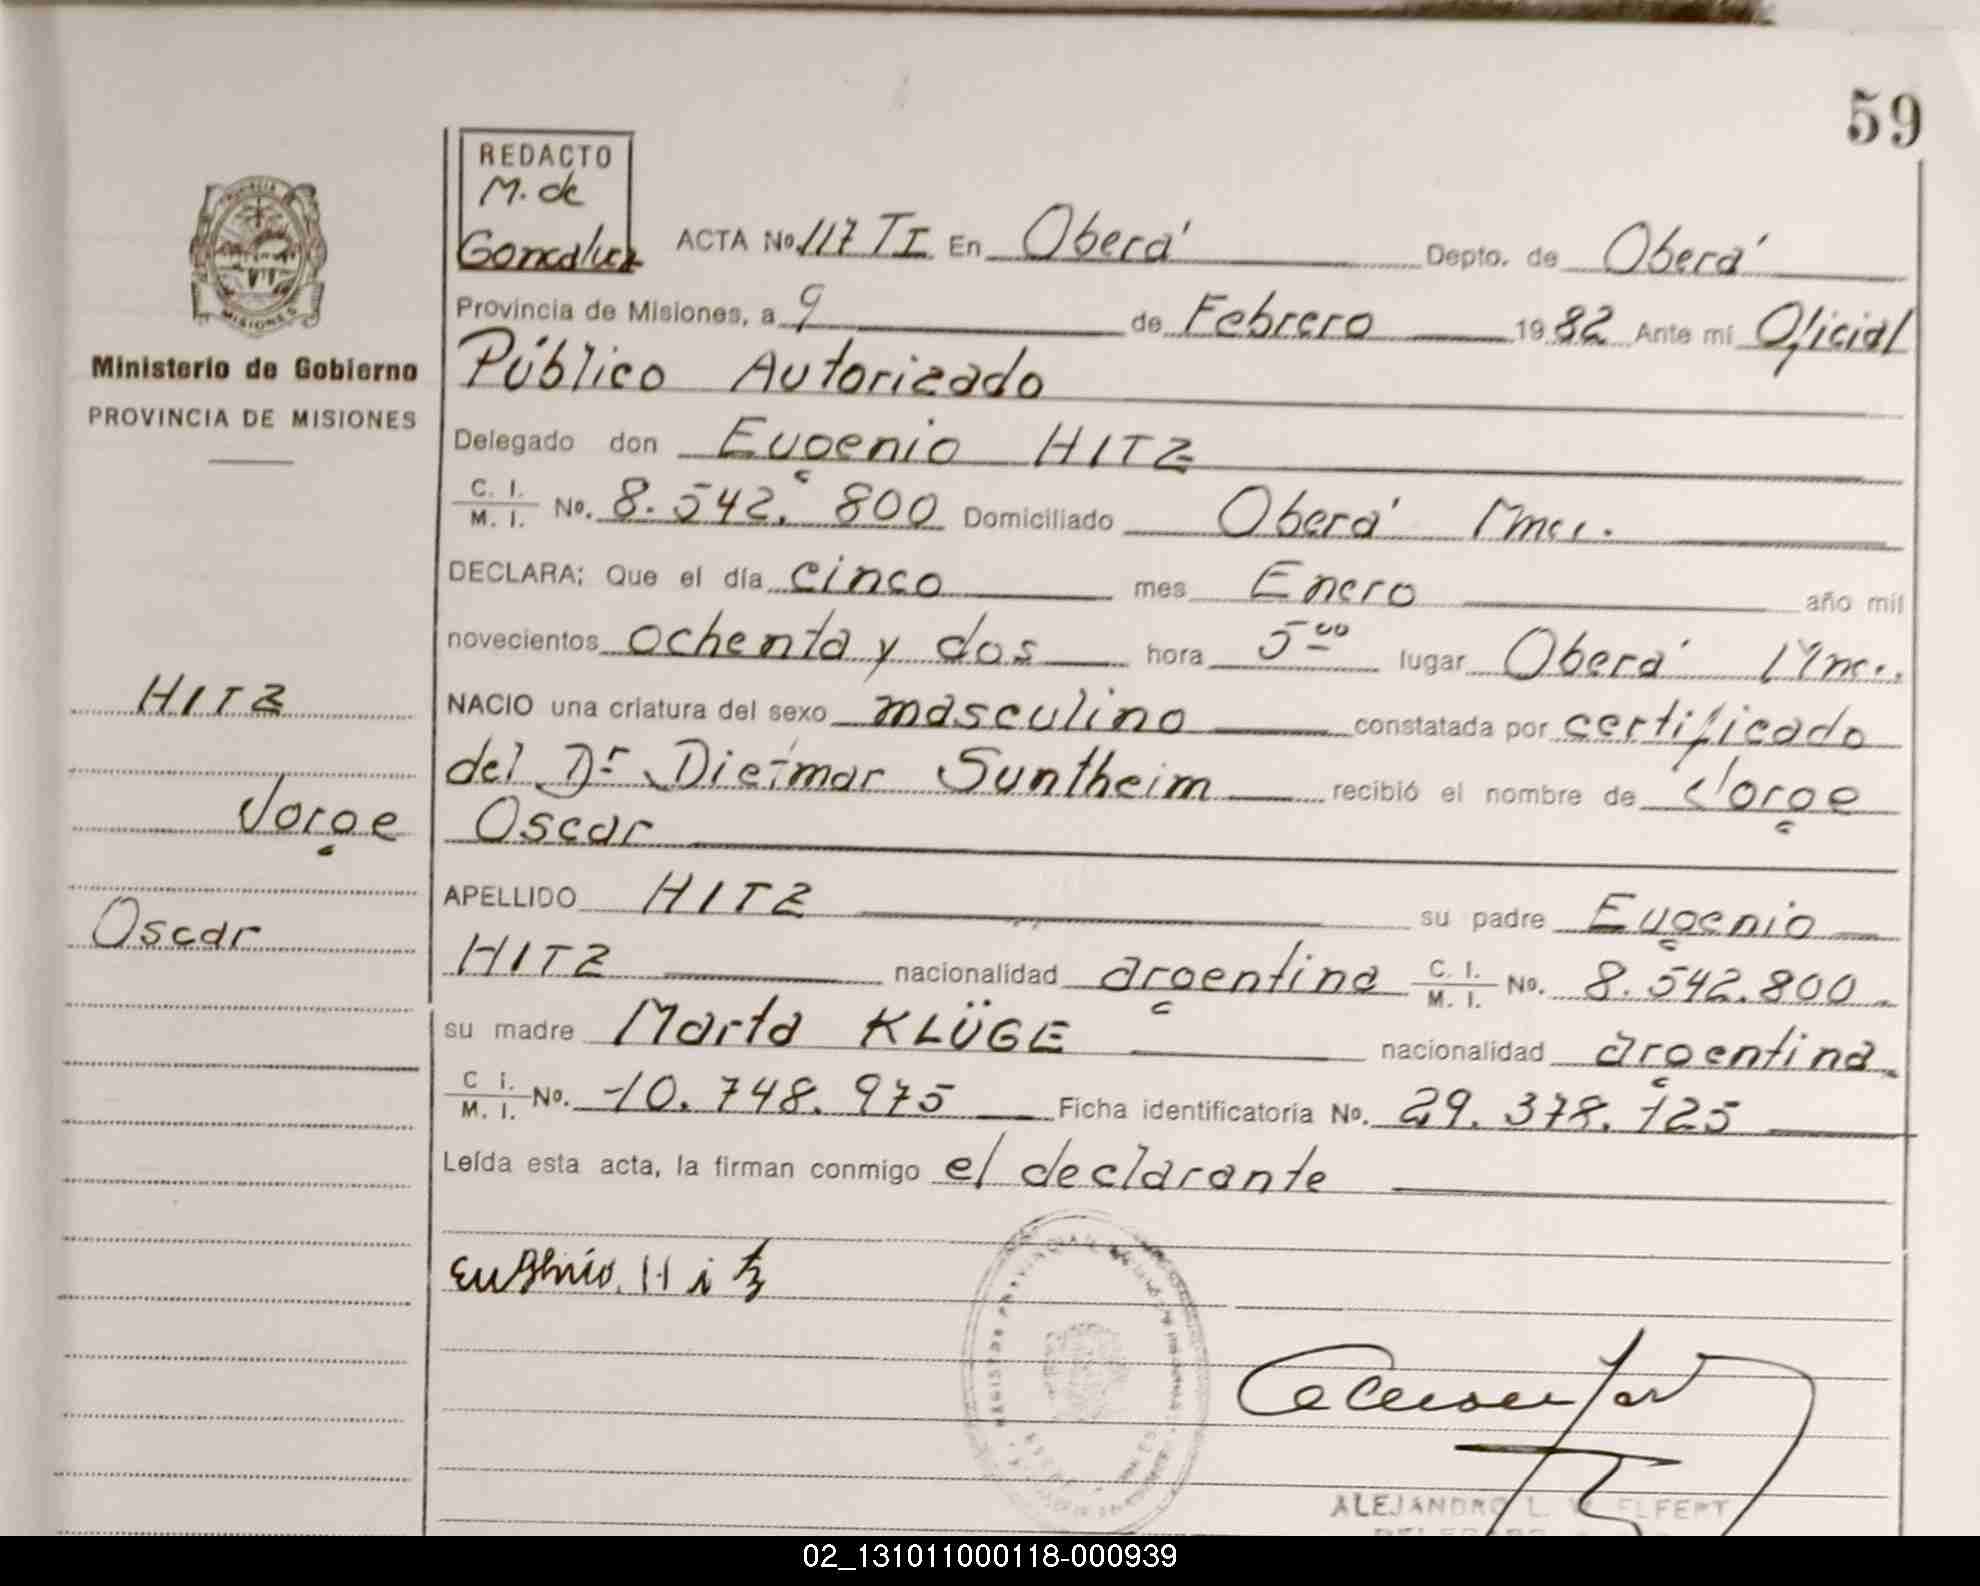 59
REDACTO
M. de
Goncalvez
ACTA No. 117 TI En Oberá Depto. de Oberá
Provincia de Misiones, a 9 de Febrero 1982 Ante mí Oficial
Público Autorizado
Delegado don Eugenio HITZ
C. I. M. I. No. 8.542.800 Domiciliado Oberá Mnes.
DECLARA: Que el día cinco mes Enero año mil
novecientos ochenta y dos hora 5 00 lugar Oberá Mnes.
NACIO una criatura del sexo masculino constatada por certificado
del Dr. Dietmar Suntheim recibió el nombre de Jorge
Oscar
APELLIDO HITZ su padre Eugenio
HITZ nacionalidad argentina C. I. M. I. No. 8.542.800
su madre Marta KLÜGE nacionalidad argentina
C I. M. I. No. 10.748.975 Ficha identificatoria No. 29.378.125
Leída esta acta, la firman conmigo el declarante
Eugenio Hitz
ALEJANDRO L.
PROVINCIA
MISIONES
Ministerio de Gobierno
PROVINCIA DE MISIONES
HITZ
Jorge
Oscar
02_131011000118-000939